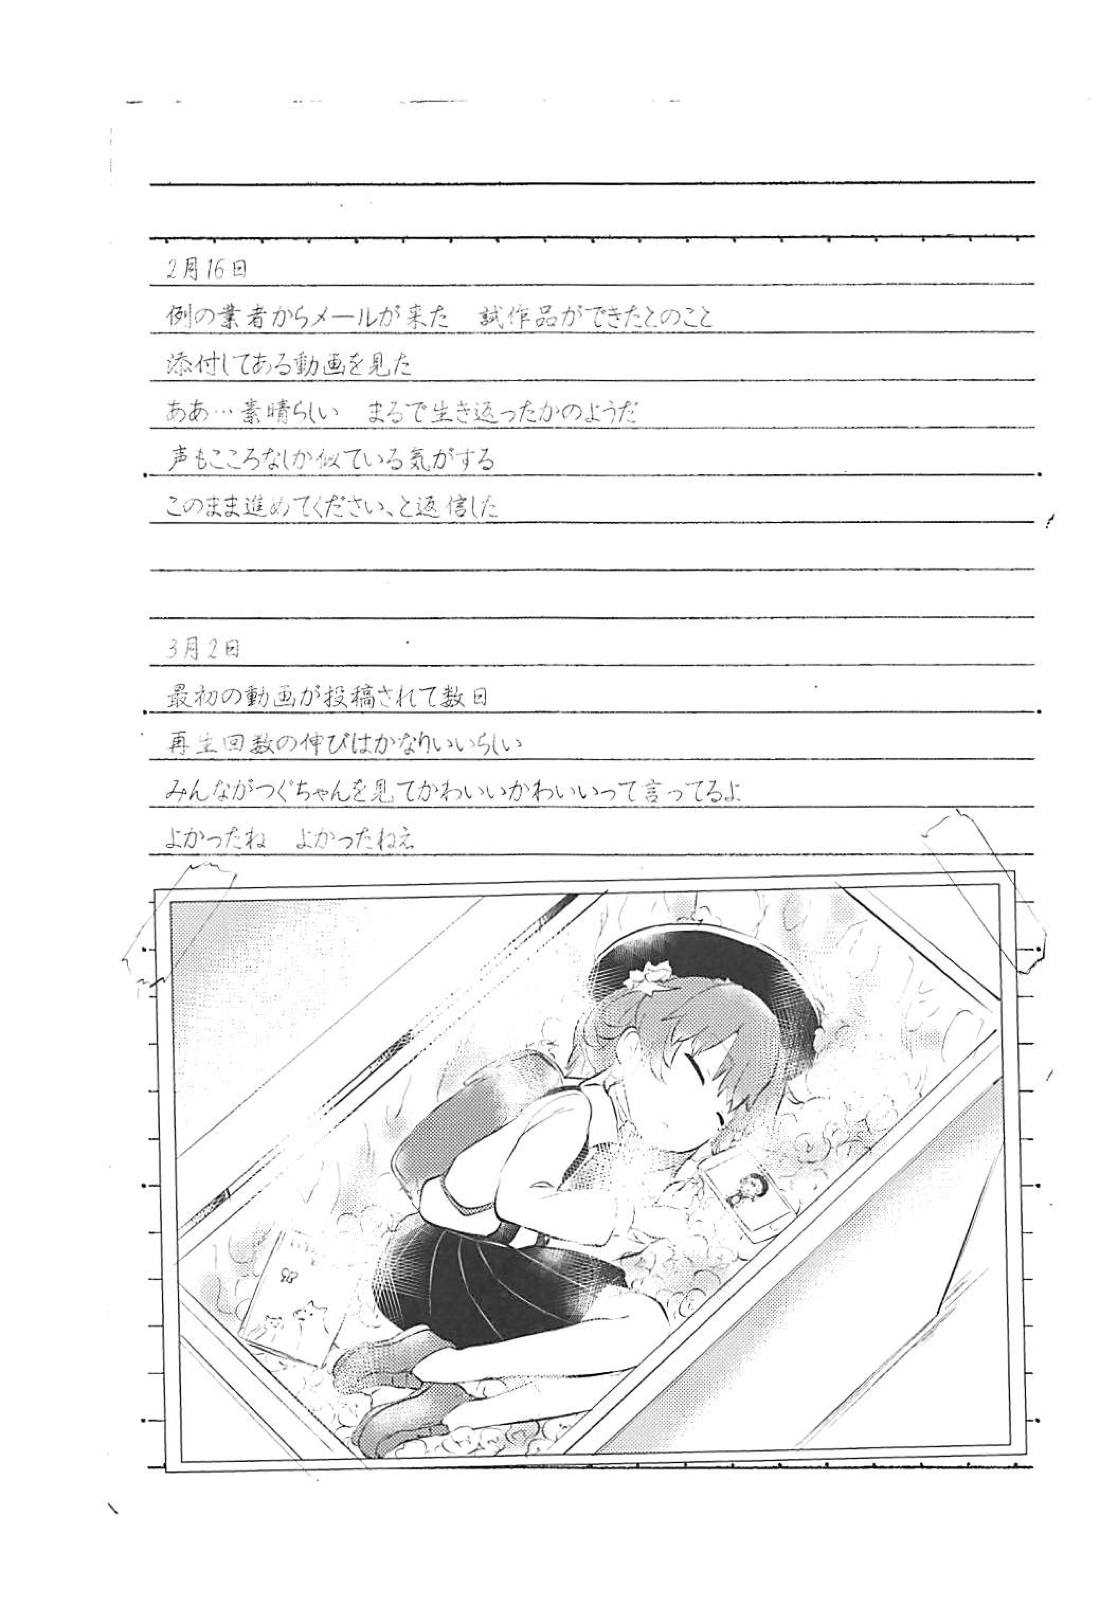 2月16日
例の業者からメールが来た　試作品ができたとのこと
添付してある動画を見た
ああ…素晴らしい　まるで生き返ったかのようだ
声もこころなしか似ている気がする
このまま進めてください、と返信した
3月2日
最初の動画が投稿されて数日
再生回数の伸びはかなりいいらしい
みんながつぐちゃんを見てかわいいかわいいって言ってるよ
よかったね　よかったねえ